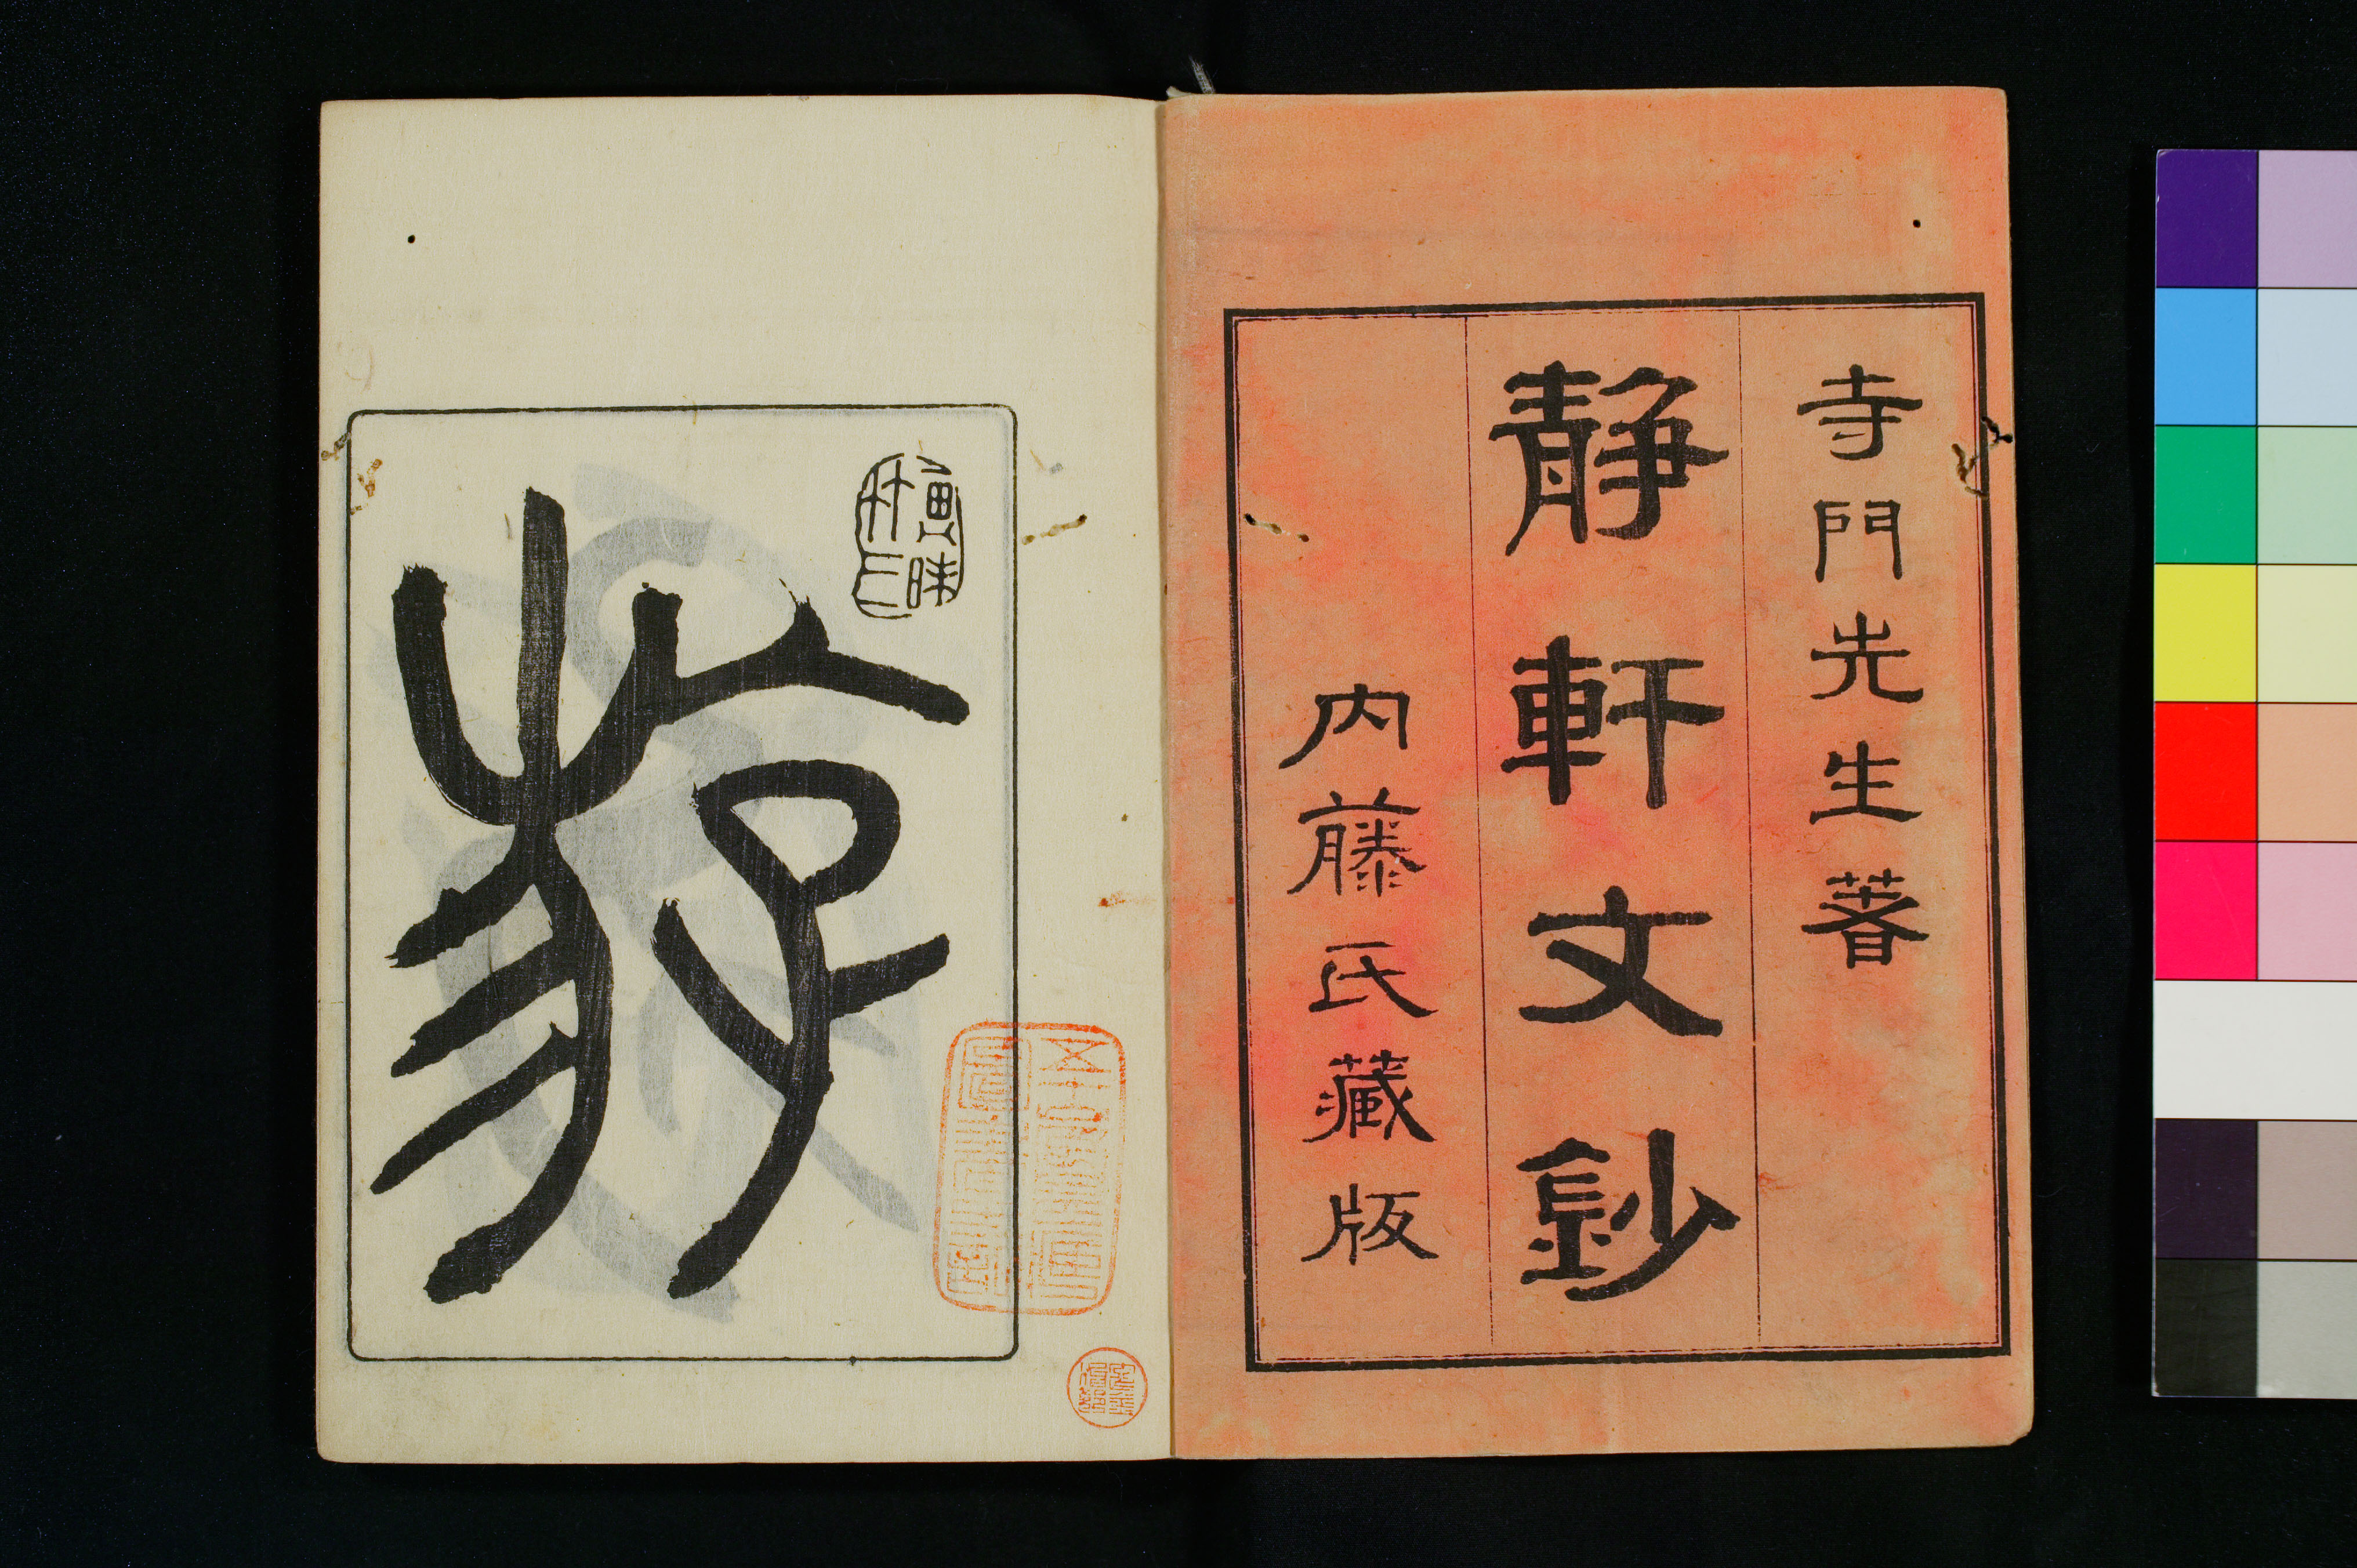 寺門先生著
静軒文鈔
内藤氏藏版
游